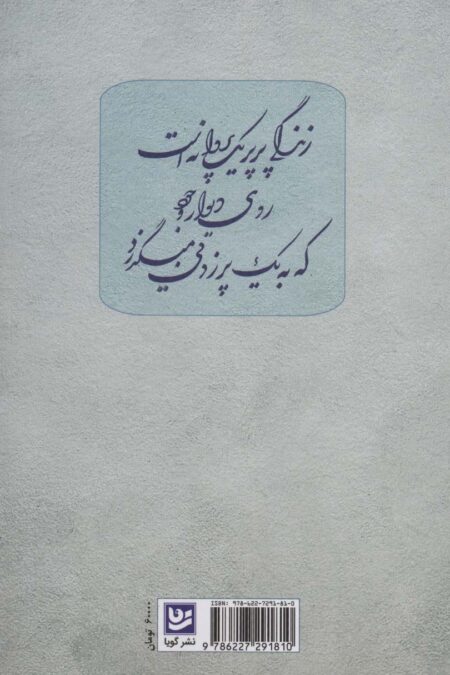 زندگی پر پر یک پروانه است
روی دیوار وجود
که به یک پر زدنی میگذرد
ISBN: 978-622-7291-81-0
9 786227 291810
نشر گویا
۶۰۰۰۰ تومان